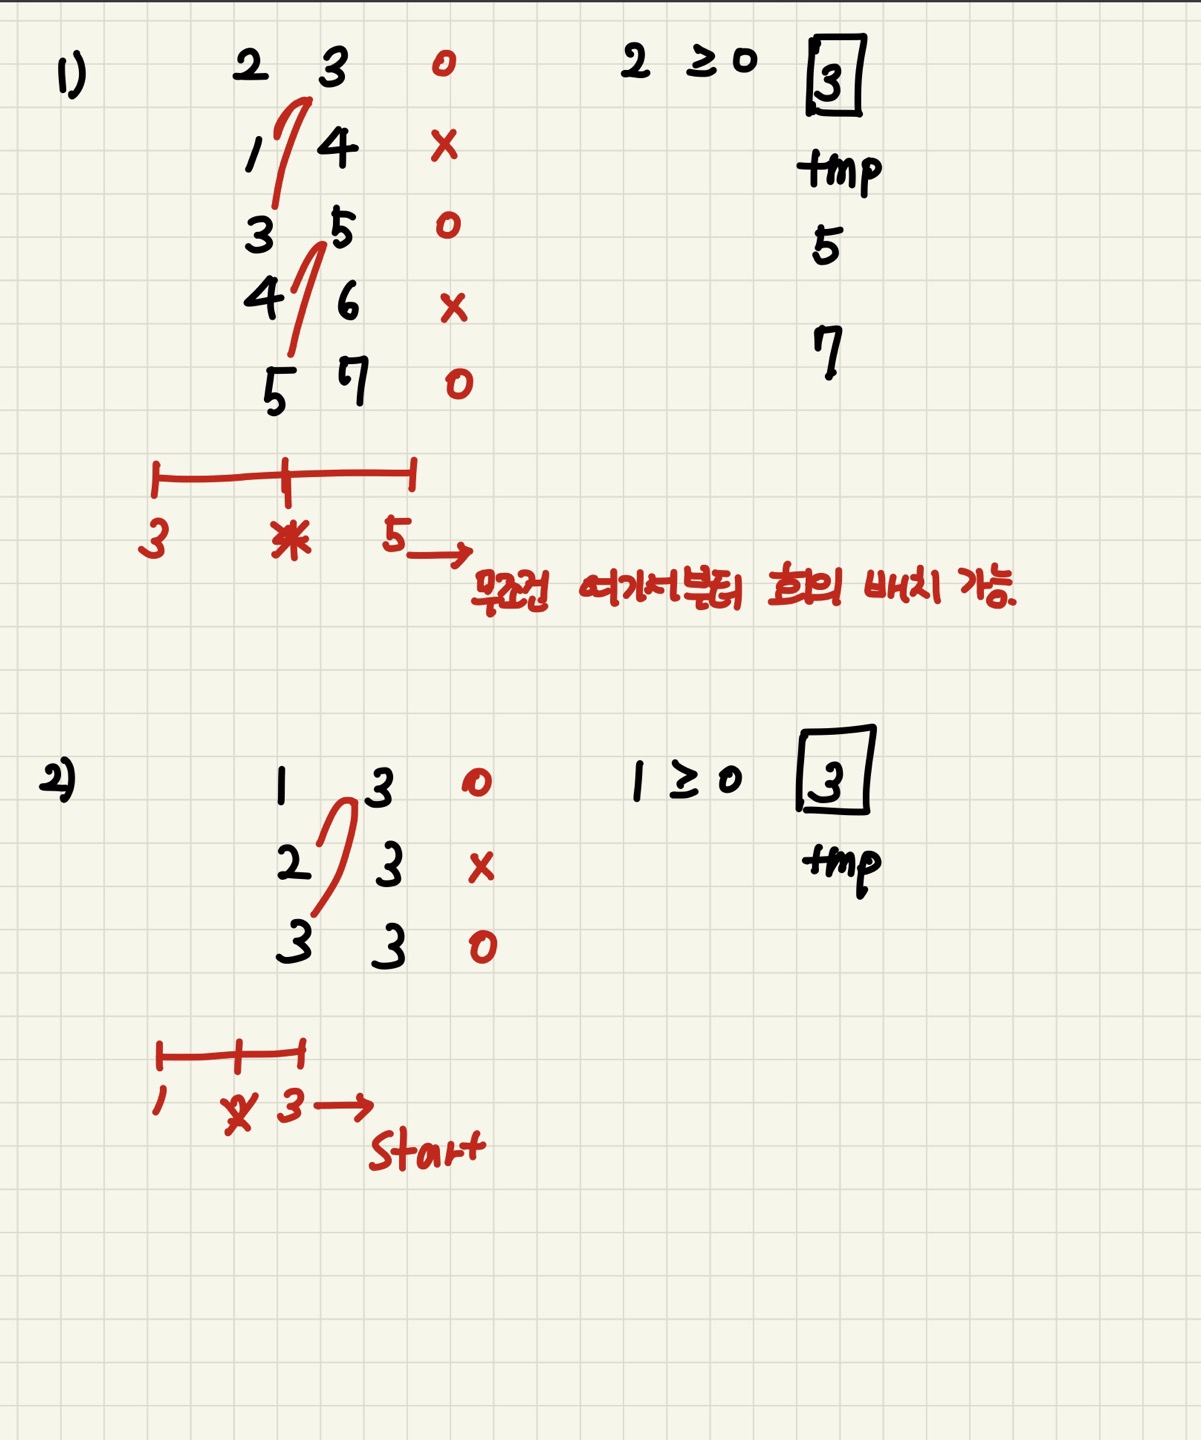 1) 2 3 O 2 ≥ 0 3
1 4 X tmp
3 5 O 5
4 6 X
5 7 O 7
3 * 5 →
무조건 여기서부터 회의 배치 가능.
2) 1 3 O 1 ≥ 0 3
2 3 X tmp
3 3 O
1 3 →
Start